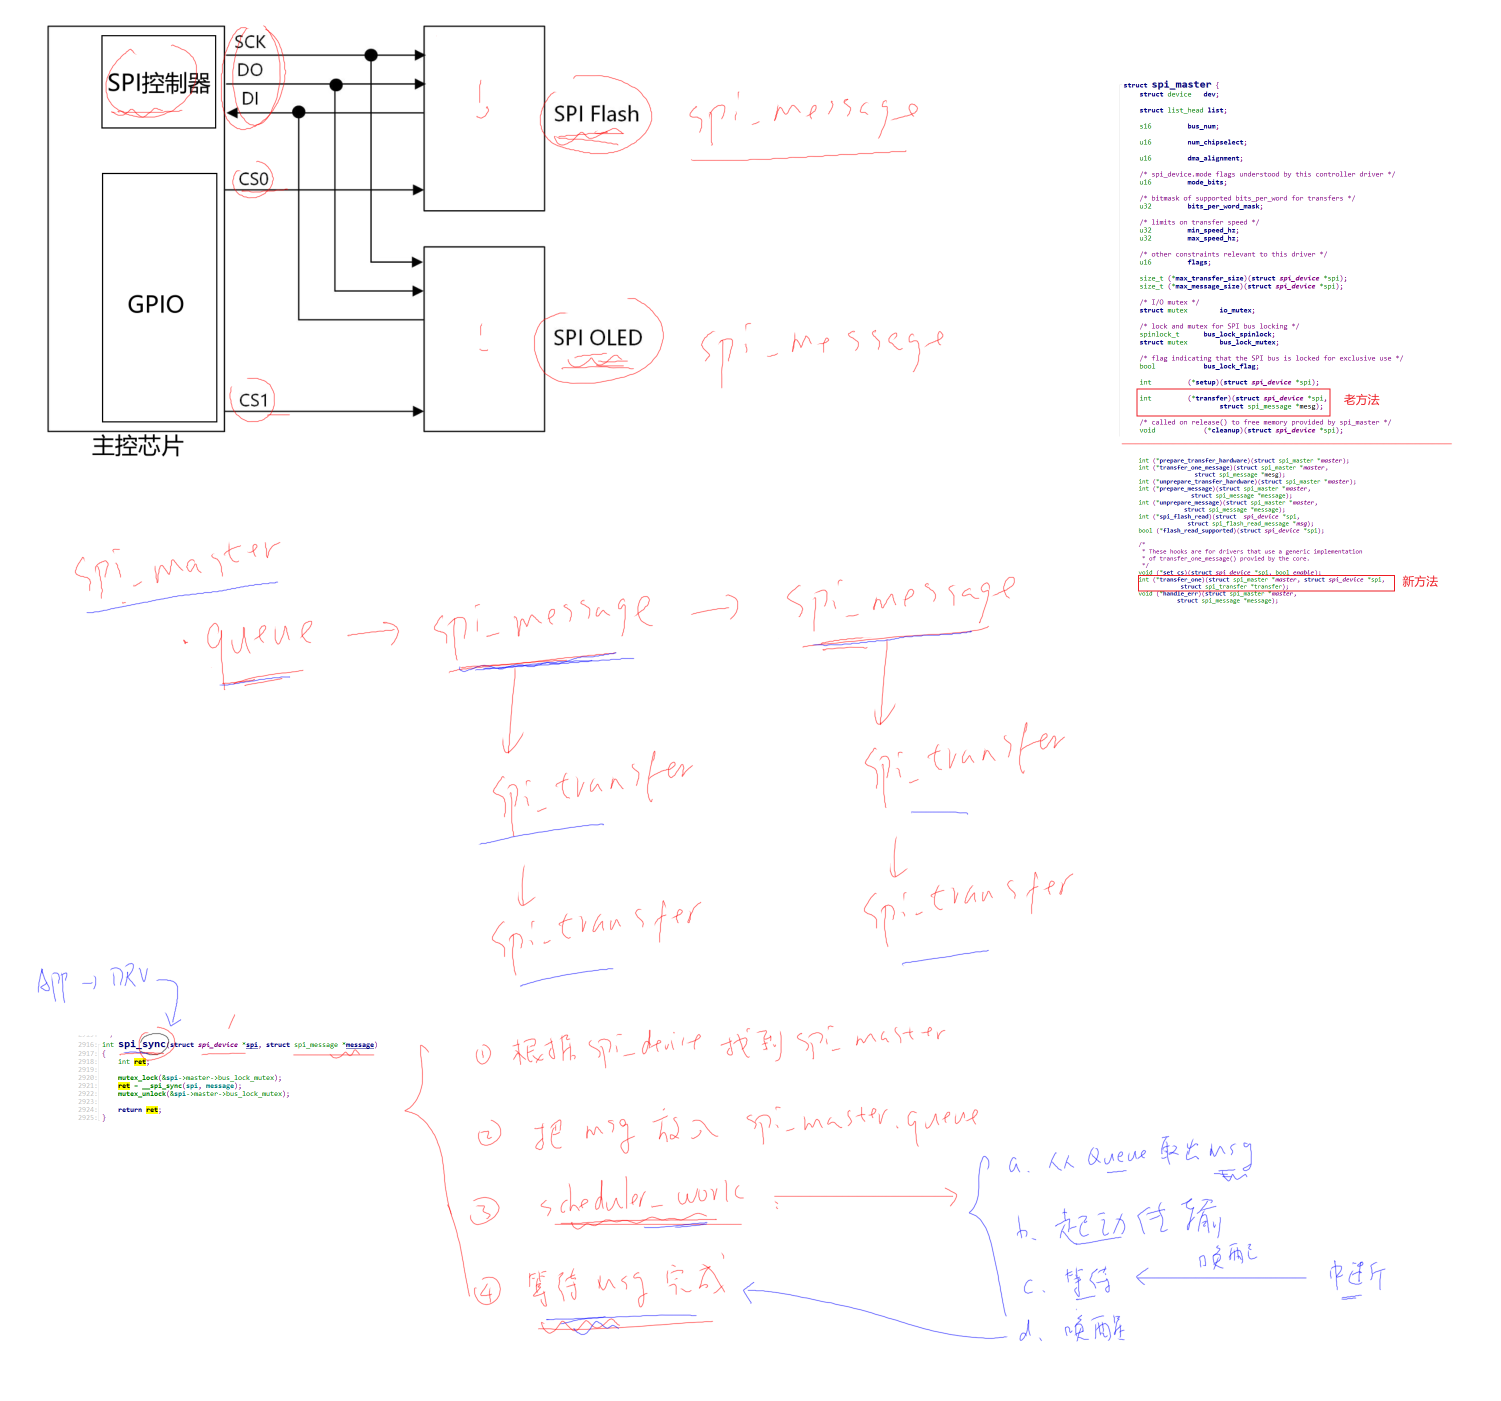 SPI控制器
SCK
DO
DI
CS0
GPIO
CS1
主控芯片
SPI Flash
spi_message
SPI OLED
spi_message
struct spi_master {
struct device dev;
struct list_head list;
s16 bus_num;
u16 num_chipselect;
u16 dma_alignment;
/* spi_device.mode flags understood by this controller driver */
u16 mode_bits;
/* bitmask of supported bits_per_word for transfers */
u32 bits_per_word_mask;
/* limits on transfer speed */
u32 min_speed_hz;
u32 max_speed_hz;
/* other constraints relevant to this driver */
u16 flags;
size_t (*max_transfer_size)(struct spi_device *spi);
size_t (*max_message_size)(struct spi_device *spi);
/* I/O mutex */
struct mutex io_mutex;
/* lock and mutex for SPI bus locking */
spinlock_t bus_lock_spinlock;
struct mutex bus_lock_mutex;
/* flag indicating that the SPI bus is locked for exclusive use */
bool bus_lock_flag;
int (*setup)(struct spi_device *spi);
int (*transfer)(struct spi_device *spi,
struct spi_message *mesg);
老方法
/* called on release() to free memory provided by spi_master */
void (*cleanup)(struct spi_device *spi);
int (*prepare_transfer_hardware)(struct spi_master *master);
int (*transfer_one_message)(struct spi_master *master,
struct spi_message *mesg);
int (*unprepare_transfer_hardware)(struct spi_master *master);
int (*prepare_message)(struct spi_master *master,
struct spi_message *message);
int (*unprepare_message)(struct spi_master *master,
struct spi_message *message);
int (*spi_flash_read)(struct spi_device *spi,
struct spi_flash_read_message *msg);
bool (*flash_read_supported)(struct spi_device *spi);
/*
* These hooks are for drivers that use a generic implementation
* of transfer_one_message() provied by the core.
*/
void (*set_cs)(struct spi_device *spi, bool enable);
int (*transfer_one)(struct spi_master *master, struct spi_device *spi,
struct spi_transfer *transfer);
新方法
void (*handle_err)(struct spi_master *master,
struct spi_message *message);
spi_master
. queue → spi_message → spi_message
spi_transfer
spi_transfer
spi_transfer
spi_transfer
APP → DRV
2916: int spi_sync(struct spi_device *spi, struct spi_message *message)
2917: {
2918: int ret;
2919:
2920: mutex_lock(&spi->master->bus_lock_mutex);
2921: ret = __spi_sync(spi, message);
2922: mutex_unlock(&spi->master->bus_lock_mutex);
2923:
2924: return ret;
2925: }
① 根据 spi_device 找到 spi_master
② 把 msg 放入 spi_master.queue
③ scheduler_work
④ 等待 msg 完成
a. 从 Queue 取出 msg
b. 起动传输
c. 等待
唤醒
中断
d. 唤醒